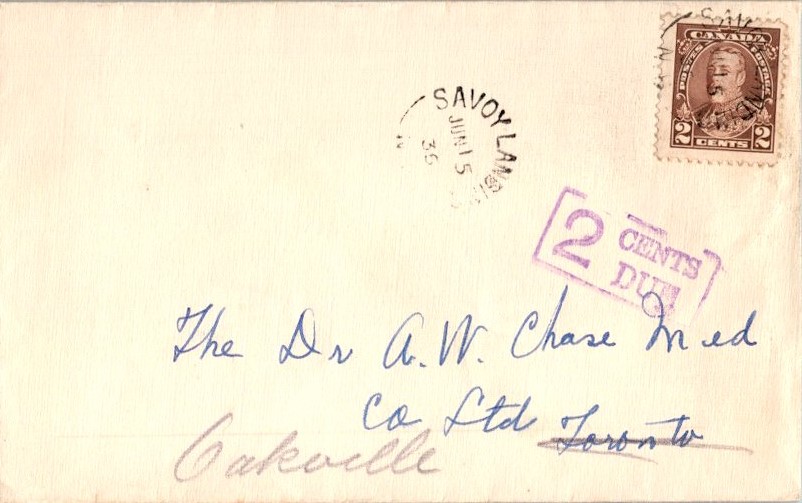 CANADA
POSTES POSTAGE
2 CENTS 2
SAVOY LANDING
JUN 15
36
2 CENTS
DUE
The Dr A.W. Chase Med
Co Ltd Toronto
Oakville